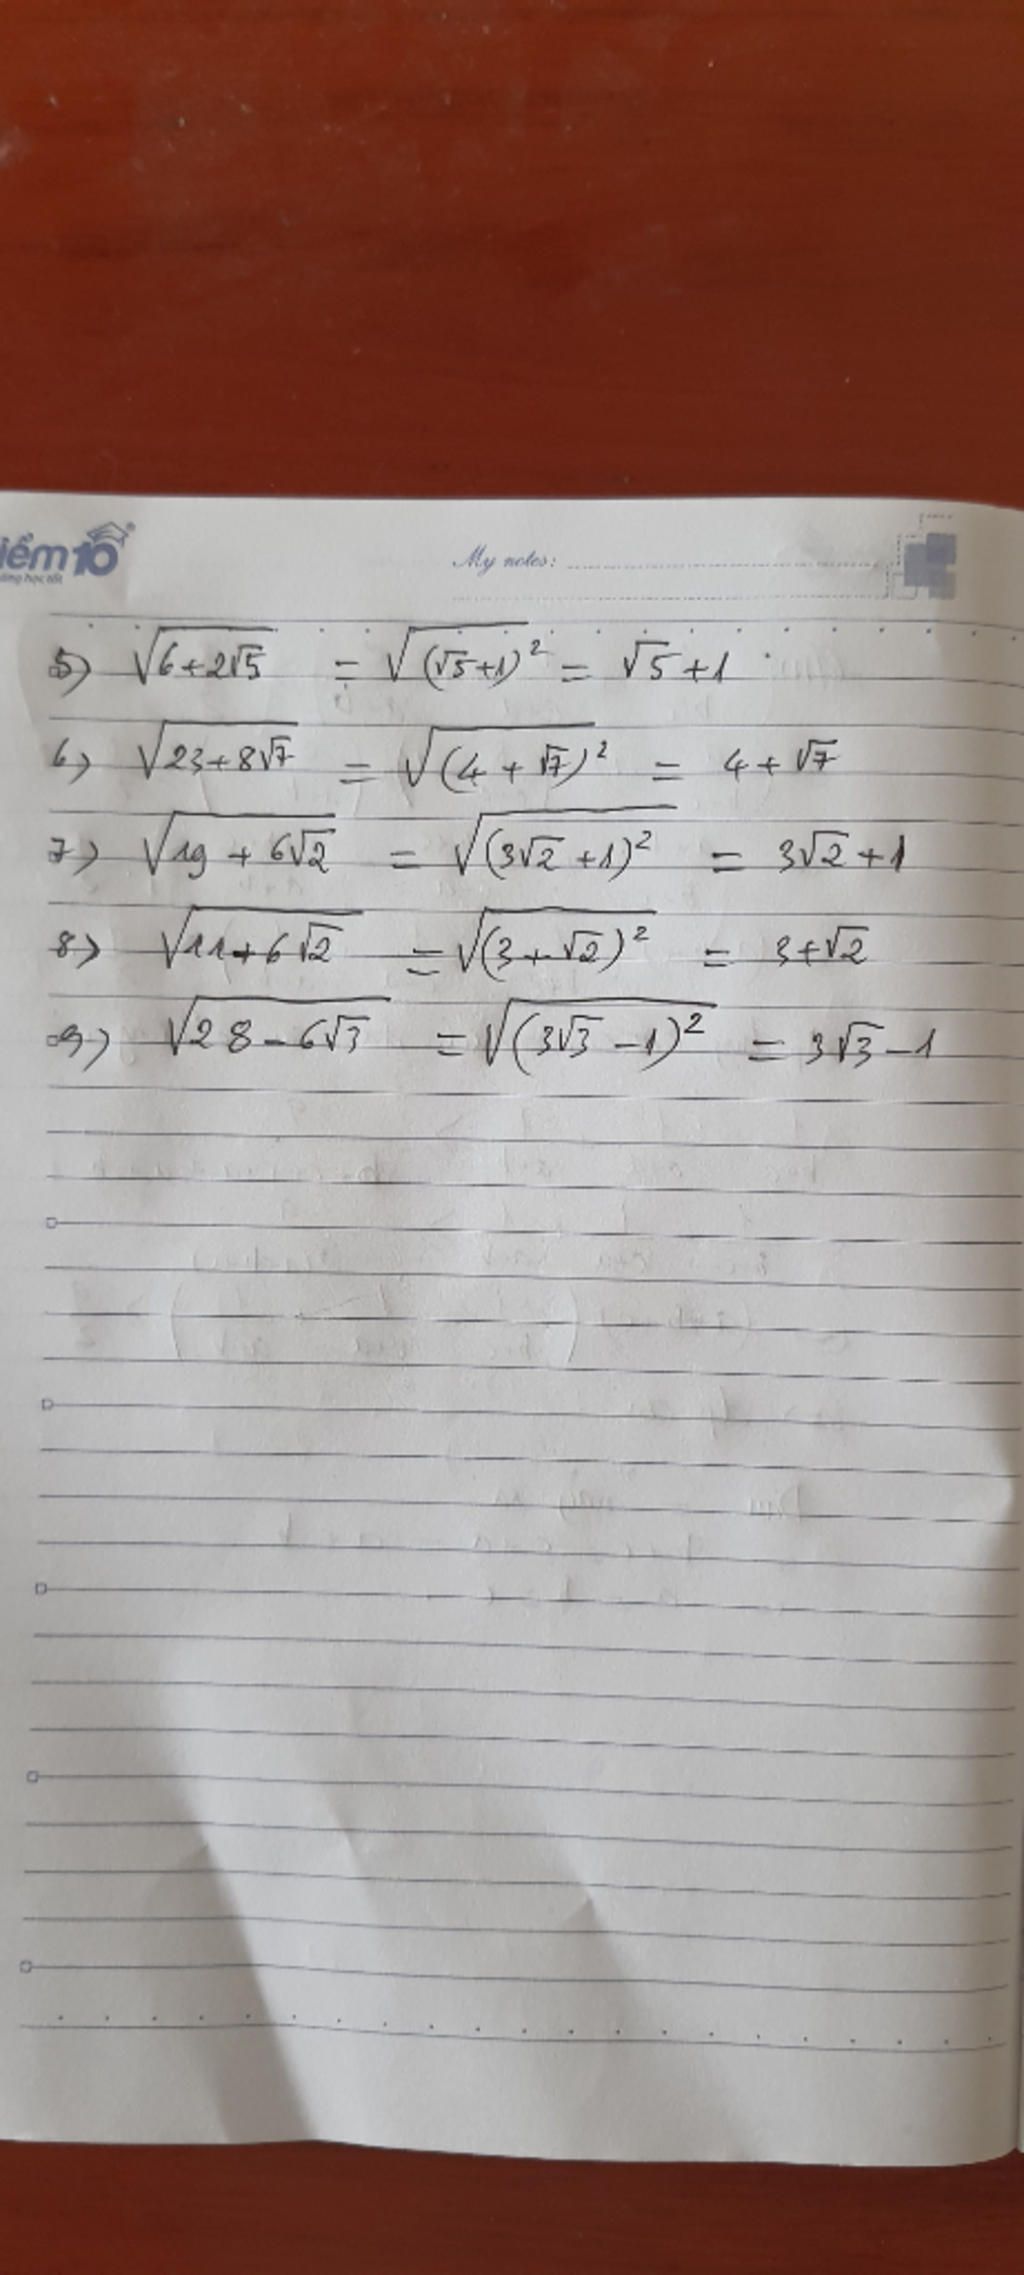 iểm10
My notes:
5) √(6+2√5) = √((√5+1)²) = √5+1
6) √(23+8√7) = √((4+√7)²) = 4+√7
7) √(19+6√2) = √((3√2+1)²) = 3√2+1
8) √(11+6√2) = √((3+√2)²) = 3+√2
9) √(28-6√3) = √((3√3-1)²) = 3√3-1